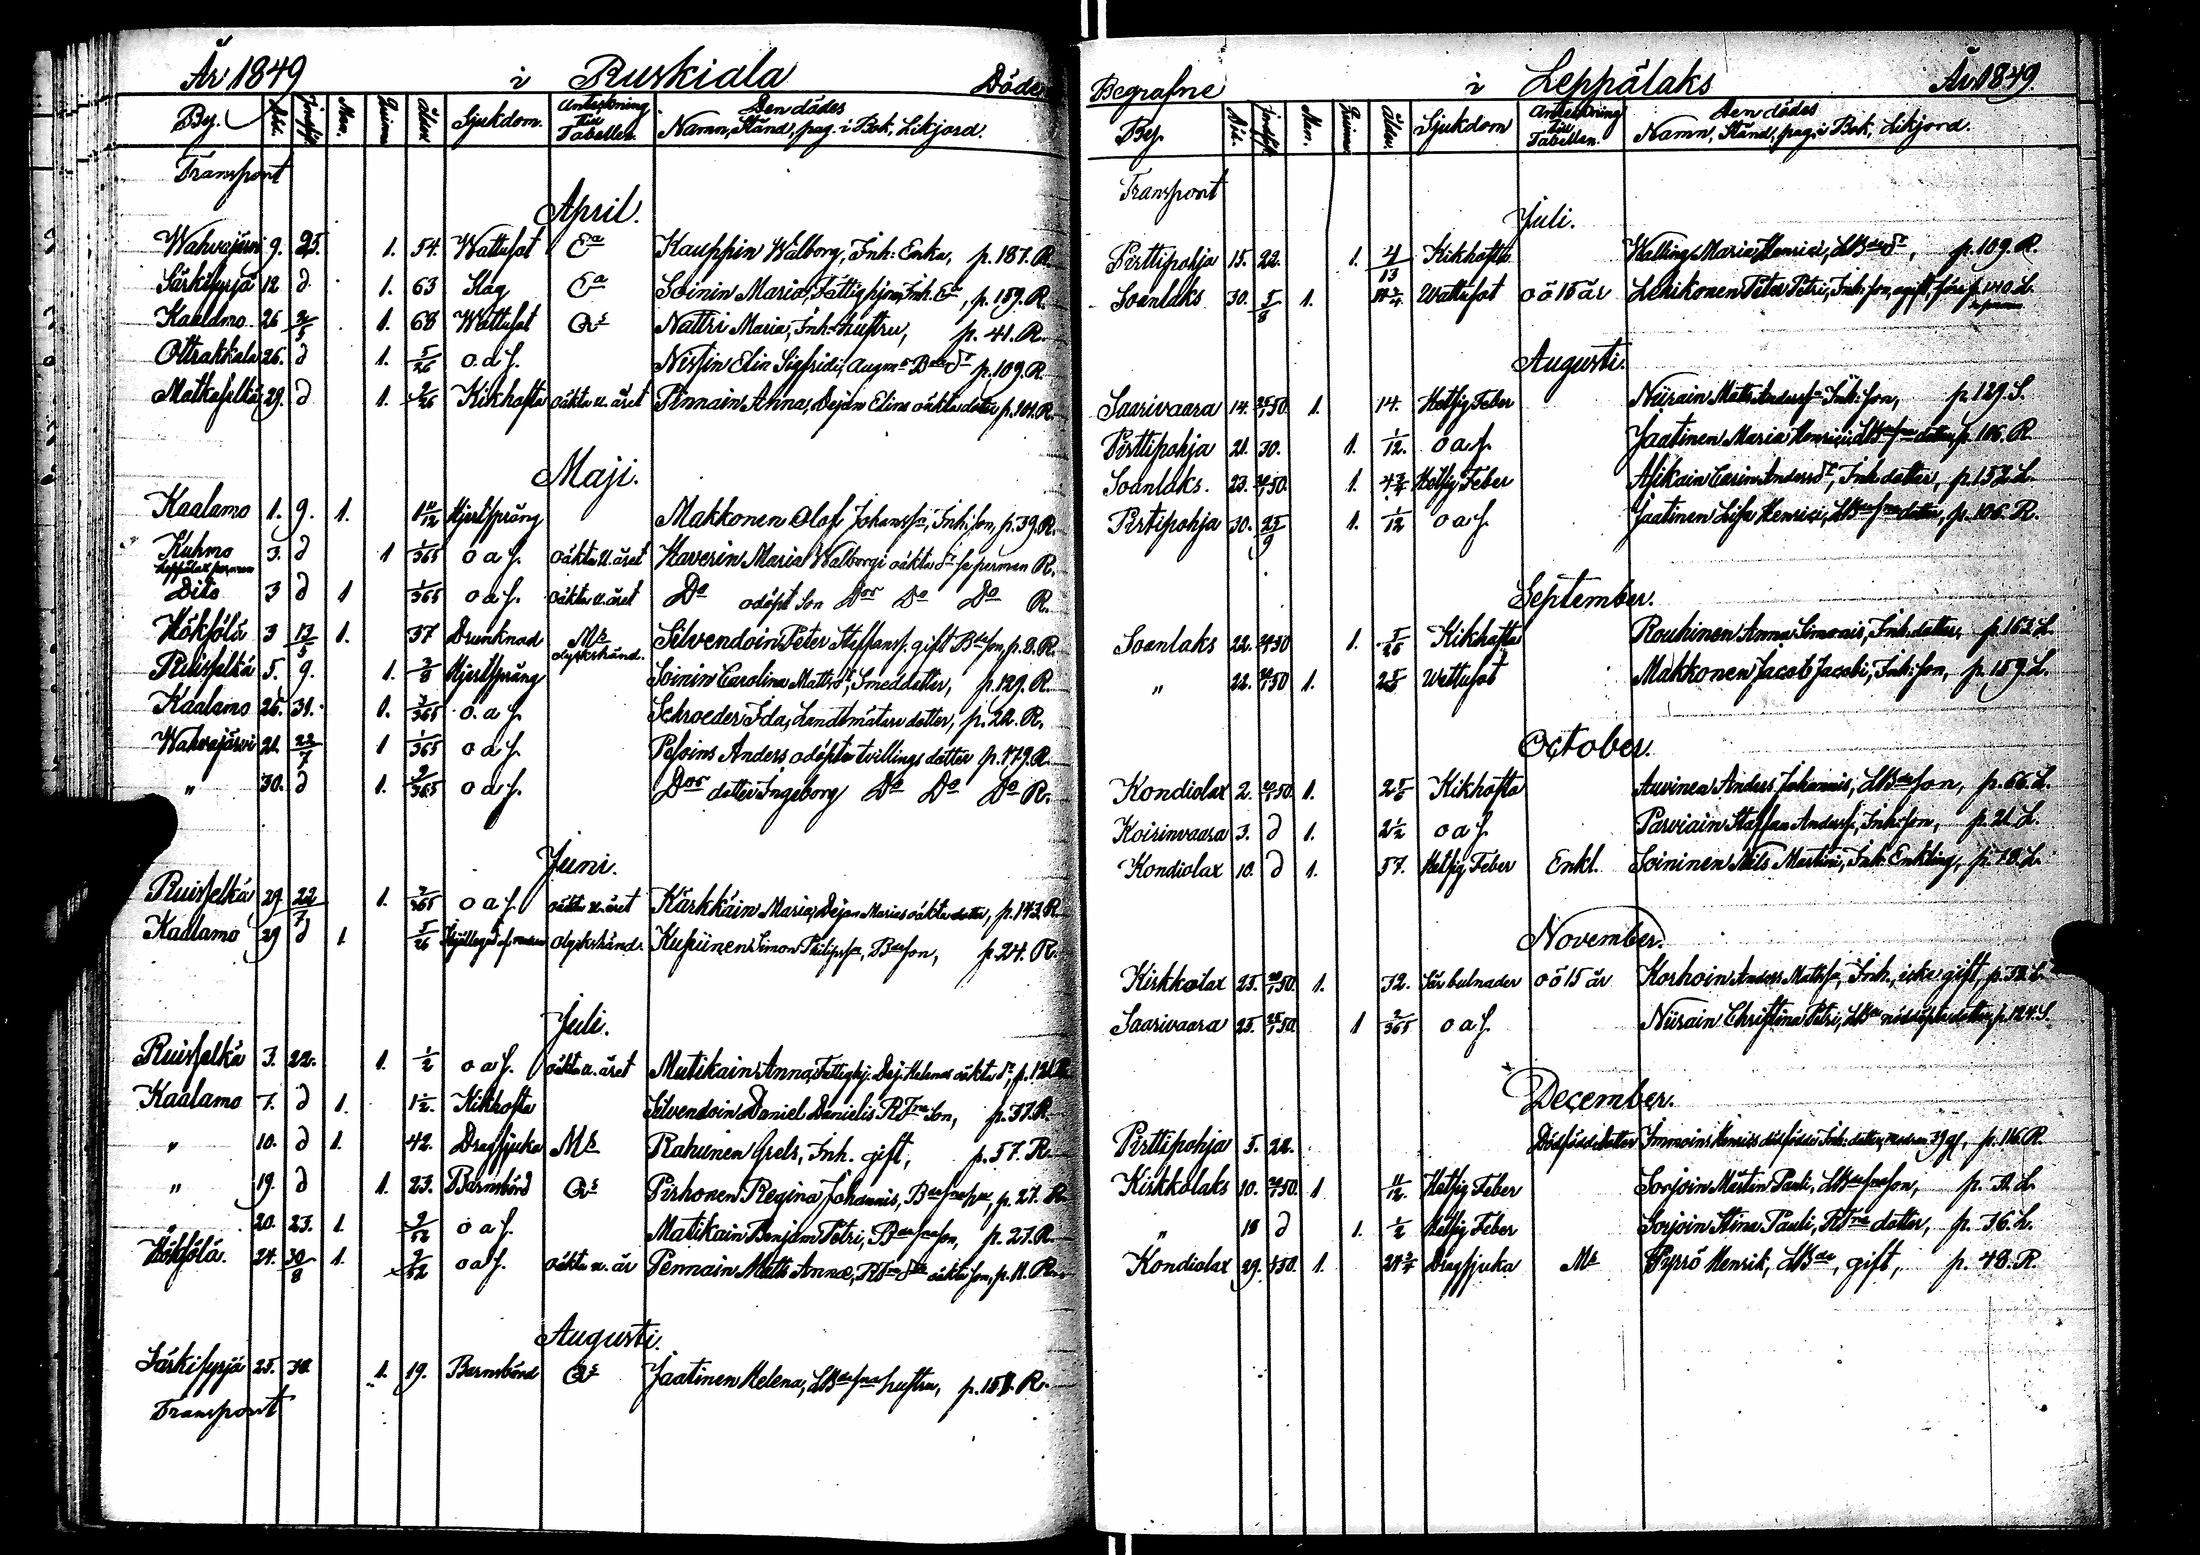 År 1849 i Ruskiala Döde
By. Död. Jordf. Man. Qvinn. Ålder Sjukdom. Anteckning till Tabellen. Den dödes Namn, Stånd, pag. i Bok, Likjord.
Transport
April.
Wahvajärvi 9. 25. 1. 54. Wattusot Ea Kauppin Walborg, Inh: Enka, p. 187. R.
Särkisyrjä 12 d 1. 63 Slag Ea Soinin Maria, Fattighjon, Inh. Ea, p. 159. R.
Kaalamo 26 1. 68 Wattusot Qs Nattri Maria, Inh. hustru, p. 41. R.
Ottrakkala 26. d 1. 5/26 o. a. s. Nissin Elin Sigfridi, p. 109. R.
Matkaselkä 29. d 1. 2/26 Kikhosta oäkta u. året Pennain Anna, Dejan Elins oäkta dotter p. 101. R.
Maji.
Kaalamo 1. 9. 1. 1 11/12 Hjertsprång Makkonen Olof Johanss:, Inh: son, p. 39. R.
Kuhmo 3. d 1 1/365 o a s. oäkta u. året Haverin Maria Walborgi oäkta R.
Dito 3 d 1 1/365 o a s. oäkta u. året Do odöpt son Dor Do Do R.
Hökfölä 3 13/5 1. 37 Drunknad Ms olyckshänd. Silvendoin Peter Staffans. gift Bde son, p. 8. R.
Ruisselkä 5. 9. 1. 3/8 Hjertsprång Soinin Carolina Mattsdr, Smeddotter, p. 129. R.
Kaalamo 26. 31. 1. 2/365 o. a. s. Schroeder Ida, Landtmätare dotter, p. 22. R.
Wahvajärvi 21. 22/7 1 1/365 o a s. Peloins Anders odöpta tvillings dotter p. 179. R.
" 30. d 1. 9/365 o a s. Dor dotter Ingeborg Do Do Do R.
Juni.
Ruisselkä 29. 22/7 1. 2/365 o a s. oäkta u. året Kärkkäin Maria, Dejan Marias oäkta dotter, p. 143. R.
Kaalamo 29 d 1 5/26 olyckshänd. Kupiinen Simon Philipss:, Bde son, p. 24. R.
Juli.
Ruisselkä 3. 22. 1. 1/2 o a s. oäkta u. året Mutikain Anna, Fattighj. Dej. Helenas oäkta dr,
Kaalamo 7. d 1. 1 1/2. Kikhosta Silvendoin Daniel Danielis son, p. 37. R.
" 10. d 1. 42. Dragsjuka Ms Rahunen Grels, Inh. gift, p. 57. R.
" 19. d 1. 23. Barnsbörd Qs Pirhonen Regina Johannis, p. 27. R.
20. 23. 1. 9/52 o a s. Matikain Benjam Petri, p. 27. R.
Hökfölä. 24. 30/8 1. o a s. oäkta u. år Pennain Matts Annæ, oäkta son, p. 11. R.
Augusti.
Särkisyrjä 25. 30. 1. 19. Barnsbörd Qs Jaatinen Helena, hustru, R.
Transport
Begrafne i Leppälaks År 1849.
By. Död. Jordf. Man. Qvinn. Ålder. Sjukdom Anteckning till Tabellen. Den dödes Namn, Stånd, pag. i Bok, Likjord.
Transport
Juli.
Pirttipohja 15. 22. 1. 4/13 Kikhosta Walling Maria Henrici, p. 109. R.
Soanlaks 30. 5/8 1. Wattusot o ö 15 år Lehikonen Peter Petri, Inh: son, ogift, p. 140. L.
Augusti.
Saarivaara 14. 1. 14. Hetsig Feber Niirain Matts Anderss: Inh: son, p. 129. S.
Pirttipohja 21. 30. 1. 1/12. o a s. Jaatinen Maria Henrici, dotter, p. 106. R.
Soanlaks. 23. 1. Hetsig Feber Carin Andersdr, Inh. dotter, p. 152. L.
Pirtipohja 30. 23/9 1. 1/12 o a s. Jaatinen Lisa Henrici, dotter, p. 106. R.
September.
Soanlaks 22. 1. 5/26 Kikhosta Rouhinen Anna Simonis, Inh. dotter, p. 163. L.
" 22. 1. Wattusot Makkonen Jacob Jacobi, Inh: son, p. 159. L.
October.
Kondiolax 2. 1. Kikhosta Auvinen Anders Johannis, son, p. 66. L.
Koirinvaara 3. d 1. 2 1/2 o a s. Parviain Staffan Anderss:, Inh: son, p. 21. L.
Kondiolax 10. d 1. 57. Hetsig Feber Enkl. Soininen Nils Martini, Inh. Enkling, p. 78. L.
November.
Kirkkolax 25. 1. 32. Sår bulnader o ö 15 år Korhoin Anders Mattss:, Inh., icke gift, p. 32. L.
Saarivaara 25. 1 2/365 o a s. Niirain Christina Petri, nöddöpta dotter, p. 124. S.
December.
Pirttipohja 5. 22. Dödfödd dotter Immoins Henrics dödfödda Inh: dotter, modren 39 gl, p. 116. R.
Kirkkolaks 10. 1 11/12. Hetsig Feber Sorjoin Mårten Pauli, son, L.
" 18 d 1. 1/2 Hetsig Feber Sorjoin Stina Pauli, dotter, p. 36. L.
Kondiolax 29. 1. Dragsjuka Ms Pyrrö Henrik, gift, p. 48. R.